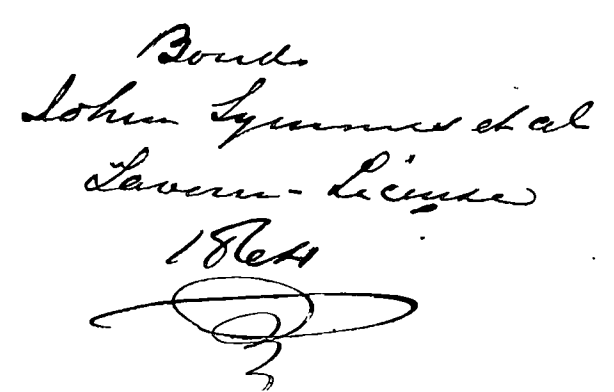 Bond.
John Symmes et al
Tavern - License
1864